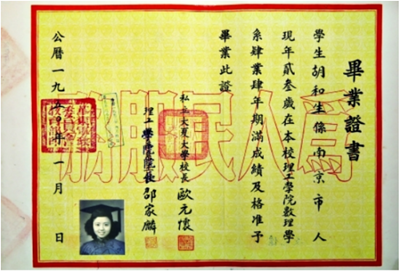 畢業證書
學生胡和生係南京市人
現年貳叁歲在本校理工學院數理學
系肄業肆年期滿成績及格准予
畢業此證
私立大夏大學校長歐元懷
理工學院院長邵家麟
公曆一九五〇年一月 日
為人民服務